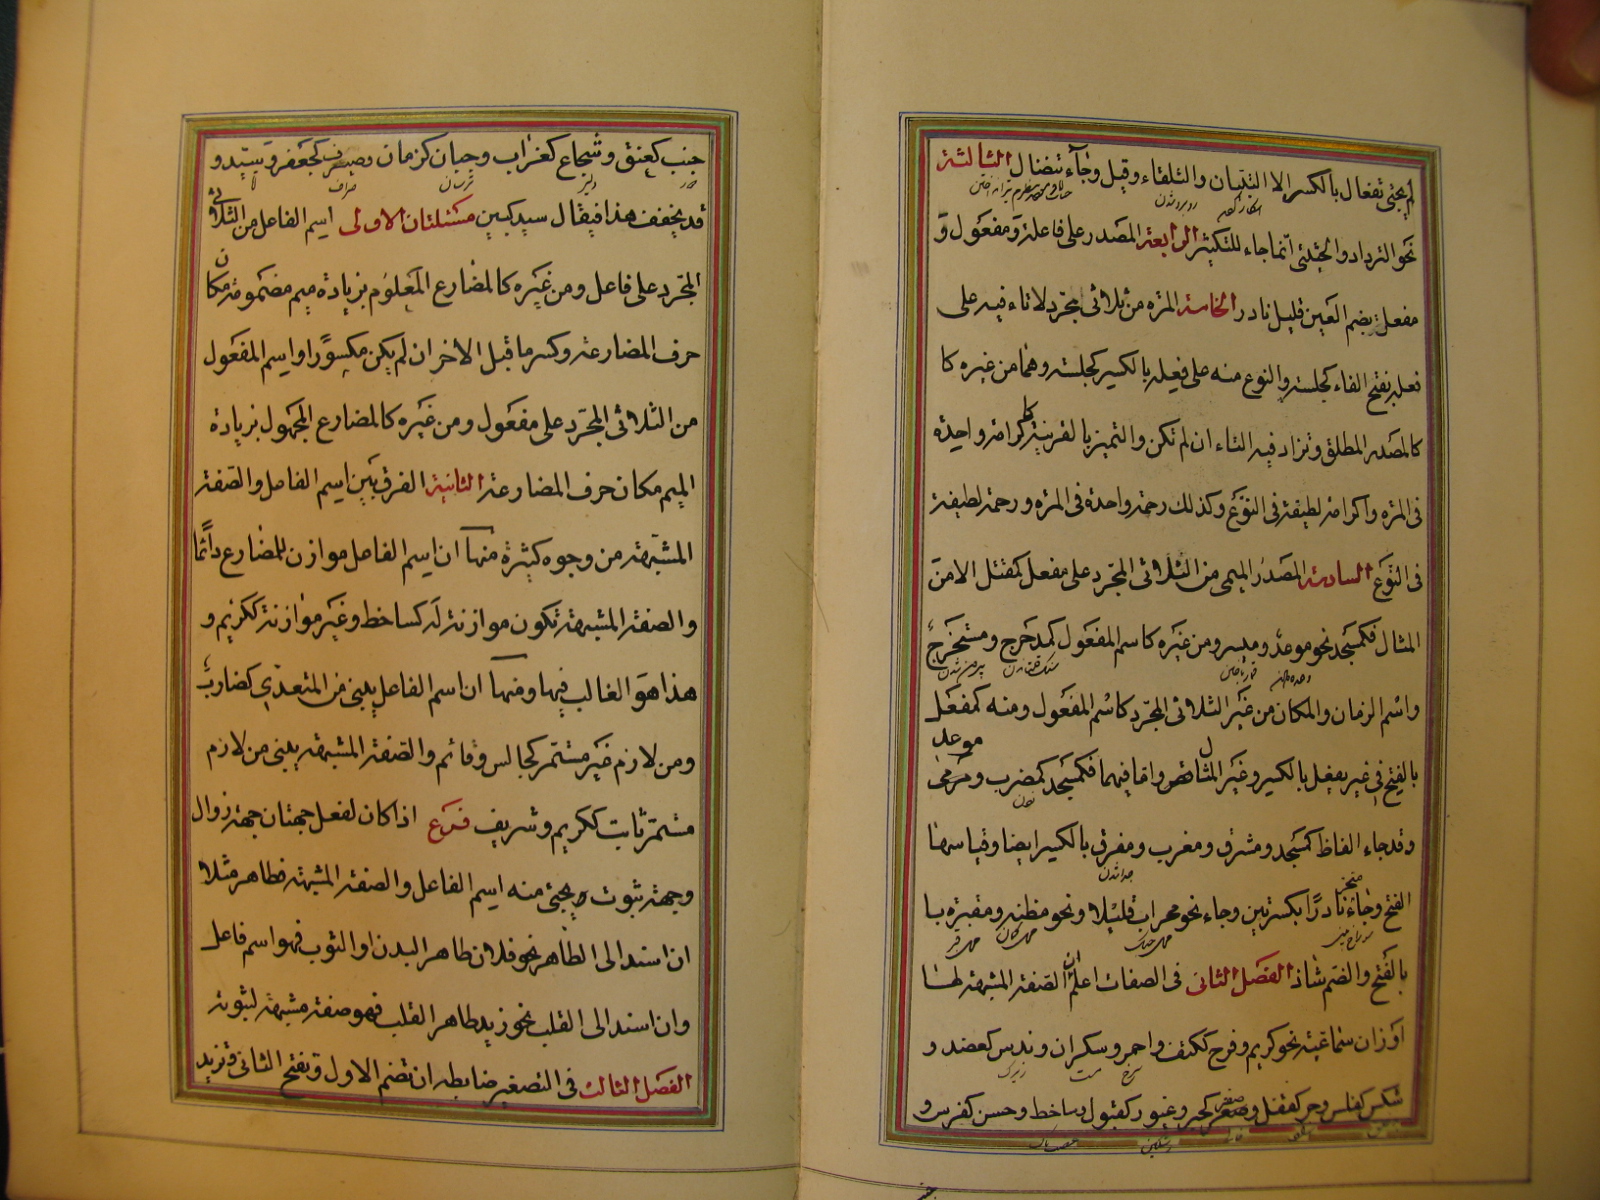 لم يجئ تفعال بالكسر الا التبيان والتلقاء وقيل وجاء تنضال الثالثة
نحو الترداد والحثيثى انما جاء للتكثير الرابعة المصدر على فاعلة ومفعول و
مفعل بضم العين قليل نادر الخامسة المرة من ثلاثى مجرد لا تاء فيه على
فعلة بفتح الفاء كجلسة والنوع منه على فعلة بالكسر كجلسة وهما من غيره كا
كالمصدر المطلق وتزاد فيه التاء ان لم تكن والتميز بالقرينة كاكرامة واحدة
فى المرة واكرامة لطيفة فى النوع وكذلك رحمة واحدة فى المرة ورحمة لطيفة
فى النوع السادسة المصدر الميمى من الثلاثى المجرد على مفعل كمقتل الا من
المثال فكمسجد نحو موعد وميسر ومن غيره كاسم المفعول كمدحرج ومستخرج
واسم الزمان والمكان من غير الثلاثى المجرد كاسم المفعول ومنه كمفعل
موعد
بالفتح فى غير يفعل بالكسر وغير المثال واما فيهما فكمسجد كمضرب و
وقد جاء الفاظ كمسجد ومشرق ومغرب ومفرق بالكسر ايضا وقياسها
جدا شدن
الفتح وجاء نادرا بكسرتين منخر وجاء نحو محراب قليلا ونحو مظنة ومقبرة با
بالفتح والضم شاذ الفصل الثانى فى الصفات اعلم ان الصفة المشبهة لها
اوزان سماعية نحو كريم وفرح ككتف واحمر وسكران وندس كعضد و
زيرك سرخ مست
شكس كفلس وحر كقفل وصفر كحبر وغيور كقبول وساخط وحسن كفرس و
جنب كعنق وشجاع كغراب وجبان كزمان وصيرف كجعفر وسيد و
دلير ترسان صراف
قد يخفف هذا فيقال سيد كبين مسئلتان الاولى اسم الفاعل من الثلاثى
المجرد على فاعل ومن غيره كالمضارع المعلوم بزيادة ميم مضمومة مكان
حرف المضارعة وكسر ما قبل الاخر ان لم يكن مكسورا واسم المفعول
من الثلاثى المجرد على مفعول ومن غيره كالمضارع المجهول بزيادة
الميم مكان حرف المضارعة الثانية الفرق بين اسم الفاعل والصفة
المشبهة من وجوه كثيرة منها ان اسم الفاعل موازن للمضارع دائما
والصفة المشبهة تكون موازنة له كساخط وغير موازنة ككريم و
هذا هو الغالب فيها ومنها ان اسم الفاعل يبنى من المتعدى كضارب
ومن لازم غير مستمر كجالس وقائم والصفة المشبهة يبنى من لازم
مستمر ثابت ككريم وشريف فرع اذا كان لفعل جهتان جهة زوال
وجهة ثبوت يجئ منه اسم الفاعل والصفة المشبهة فطاهر مثلا
ان اسند الى الظاهر نحو فلان طاهر البدن او الثوب فهو اسم فاعل
وان اسند الى القلب نحو زيد طاهر القلب فهو صفة مشبهة لثبوته
الفصل الثالث فى التصغير ضابطه ان تضم الاول وتفتح الثانى وتزيد